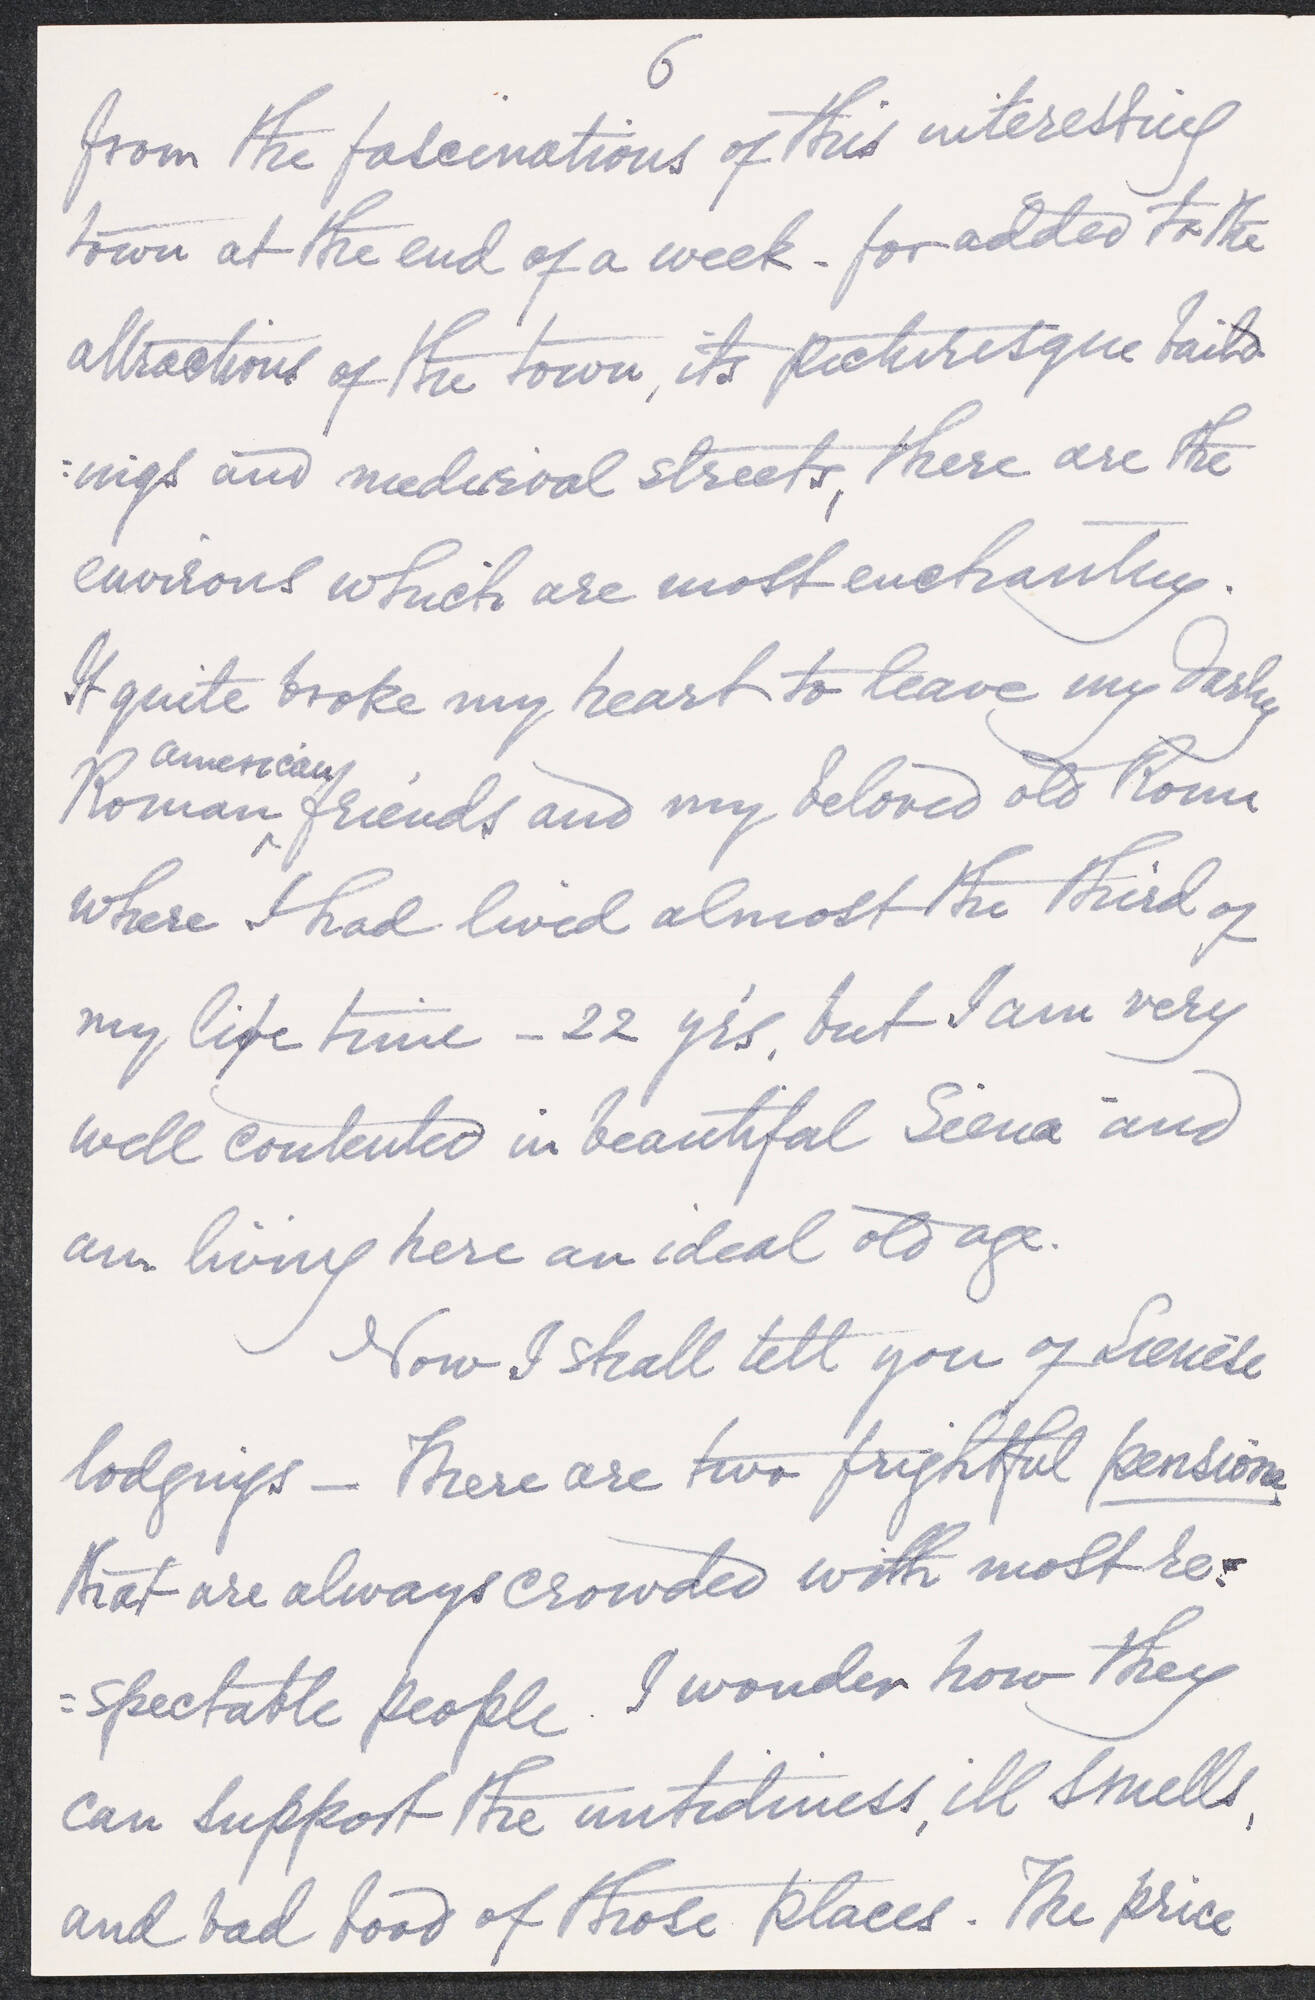 6
from the fascinations of this interesting
town at the end of a week - for added to the
attractions of the town, its picturesque build
=ings and mediæval streets, there are the
environs which are most enchanting.
It quite broke my heart to leave my darling
american
Roman ^ friends and my beloved old Rome
where I had lived almost the third of
my life time - 22 yrs, but I am very
well contented in beautiful Siena and
am living here an ideal old age.
Now I shall tell you of Sienese
lodgings — There are two frightful pensions
that are always crowded with most re=
=spectable people. I wonder how they
can support the untidiness, ill smells,
and bad food of those places. The price